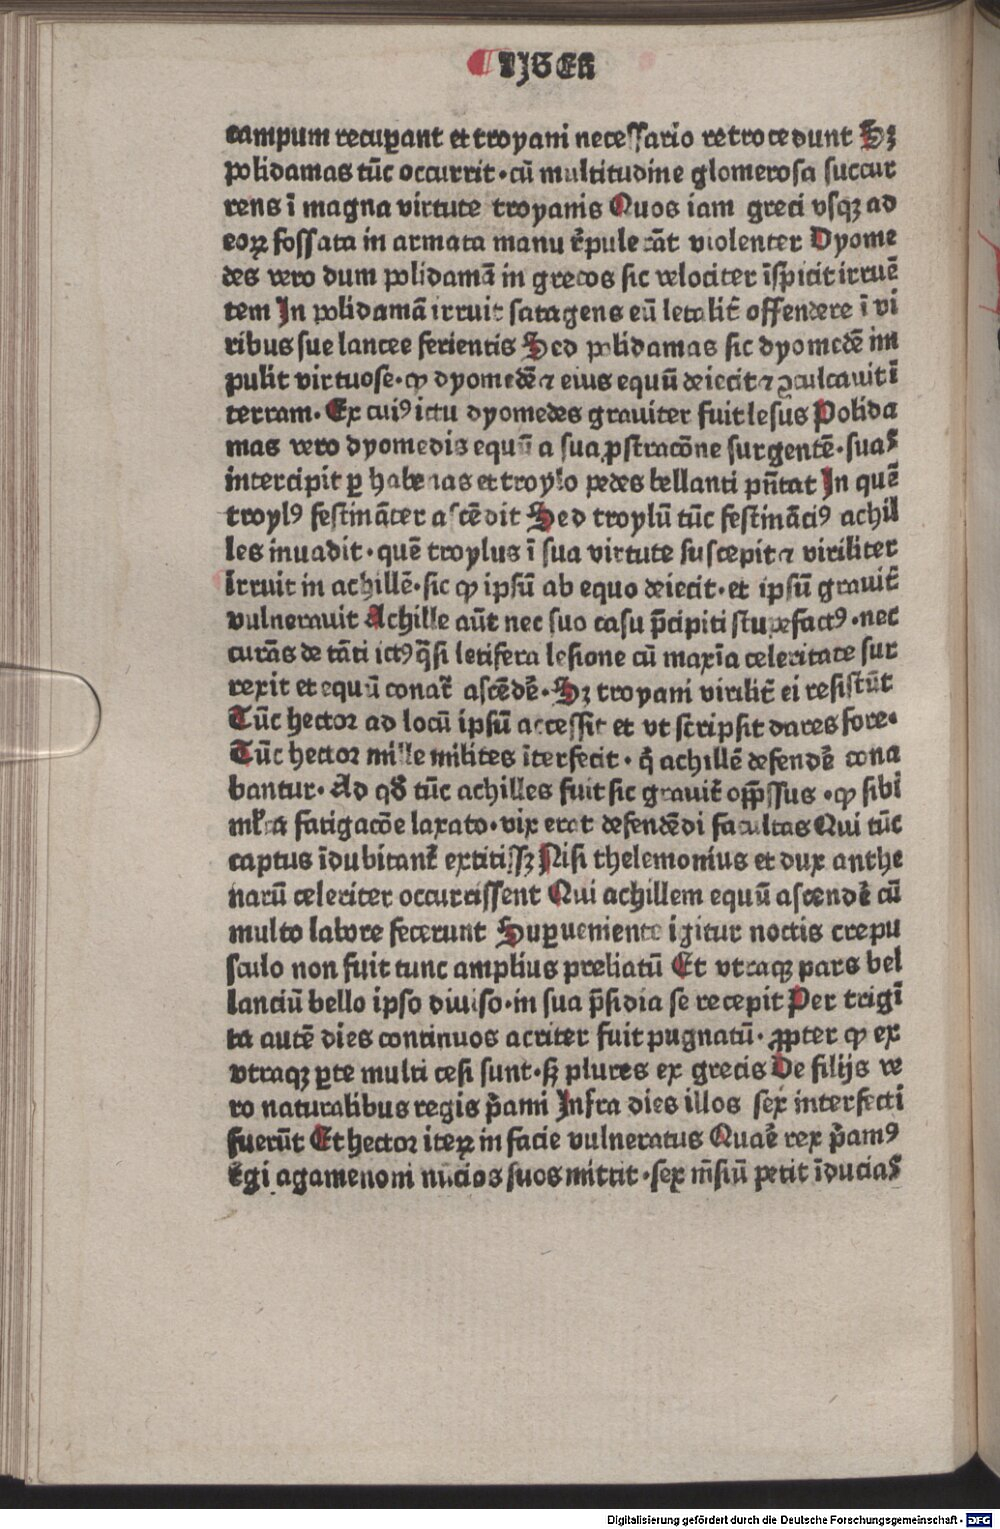 LJGER
campum recuꝑant et troyani necessario retrocedunt Sꝫ
polidamas tūc occurrit·cū multitudine glomerosa succur
rens ī magna virtute troyanis Quos iam greci vsqꝫ ad
eoꝝ fossata in armata manu r̄pulerāt violenter Dyome
des vero dum polidamā in grecos sic velociter īspicit irruē
tem In polidamā irruit satagens eū letalit̄ offendere ī vi
ribus sue lancee ferientis Sed polidamas sic dyomedē im
pulit virtuose·ꝙ dyomedē ⁊ eius equū deiecit ⁊ ꝯculcauit ī
terram·Ex cuiꝰ ictu dyomedes grauiter fuit lesus Polida
mas vero dyomedis equū a sua ꝓstracōne surgentē·suas
intercipit ꝑ habenas et troylo pedes bellanti pn̄tat In quē
troylꝰ festināter ascēdit Sed troylū tūc festināciꝰ achil
les inuadit·quē troylus ī sua virtute suscepit ⁊ viriliter
Irruit in achillē·sic ꝙ ipsū ab equo deiecit·et ipsū grauit̄
vulnerauit Achille aūt nec suo casu p̄cipiti stupefactꝰ·nec
curās de tāti ictꝰ q̄si letifera lesione cū maxīa celeritate sur
rexit et equū conat̄ ascēdē·Sꝫ troyani virilit̄ ei resistūt
Tūc hector ad locū ipsū accessit et vt scripsit dares fore·
Tūc hector mille milites īterfecit·q̄ achillē defendē cona
bantur·Ad qd̄ tūc achilles fuit sic grauit̄ opp̄ssus·ꝙ sibi
fatigacōe laxato·vix erat defendēdi facultas Qui tūc
captus īdubitant̄ extitissꝫ Nisi thelemonius et dux anthe
narū celeriter occurrissent Qui achillem equū ascendē cū
multo labore fecerunt Suꝑueniente igitur noctis crepu
sculo non fuit tunc amplius preliatū Et vtraqꝫ pars bel
lanciū bello ipso diuiso·in sua p̄sidia se recepit Per trigī
ta autē dies continuos acriter fuit pugnatū·ꝓpter ꝙ ex
vtraqꝫ ꝑte multi cesi sunt·sꝫ plures ex grecis De filijs ve
ro naturalibus regis p̄ami Infra dies illos sex interfecti
fuerūt Et hector iteꝝ in facie vulneratus Quarē rex p̄amꝰ
r̄gi agamenoni nūcios suos mittit·sex m̄siū petit īducias
Digitalisierung gefördert durch die Deutsche Forschungsgemeinschaft - DFG